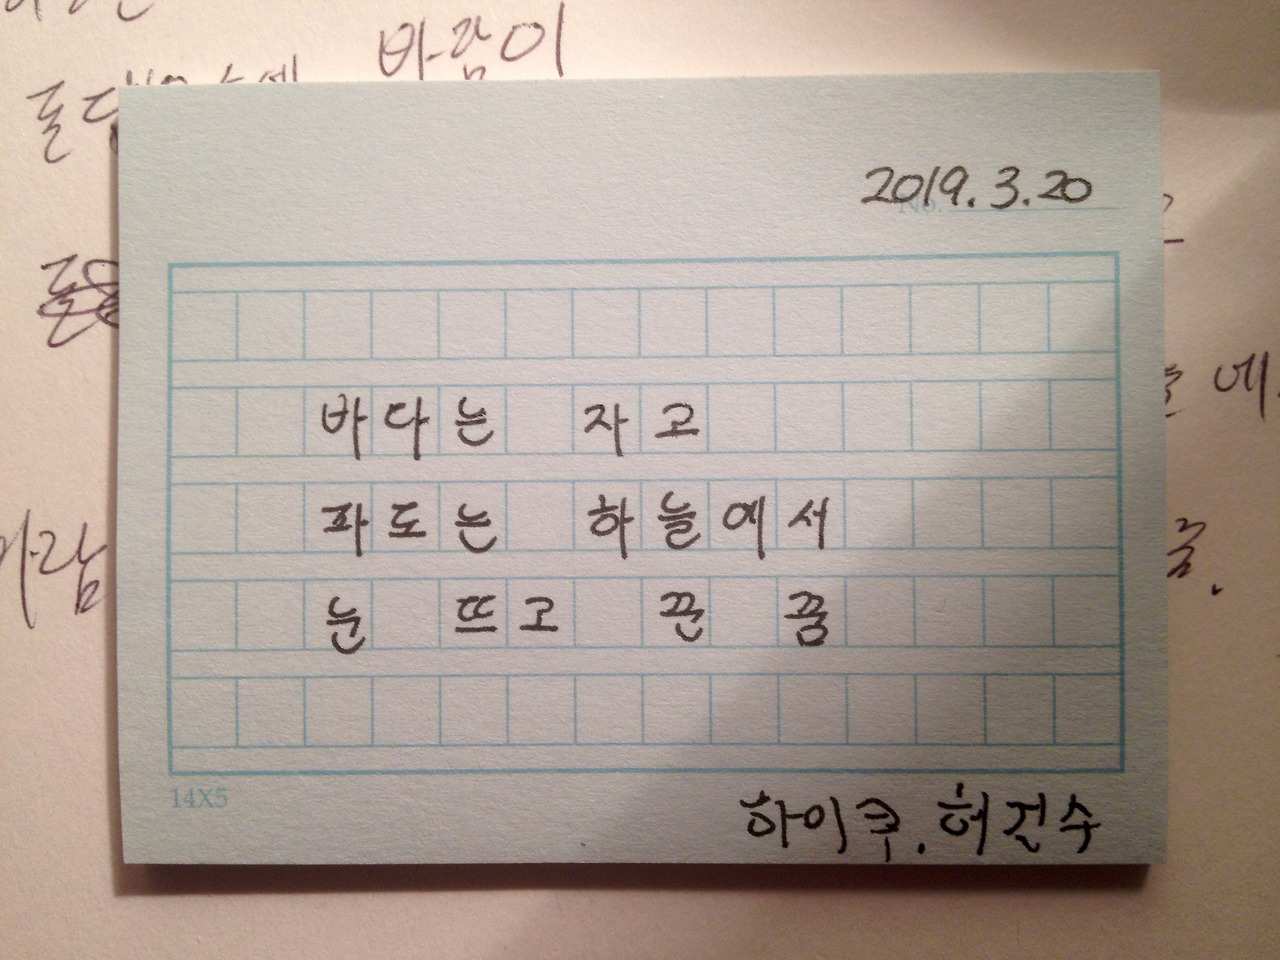 바람이
2019.3.20
No.
바다는 자고
파도는 하늘에서
눈 뜨고 꾼 꿈
14X5
하이쿠. 허건수